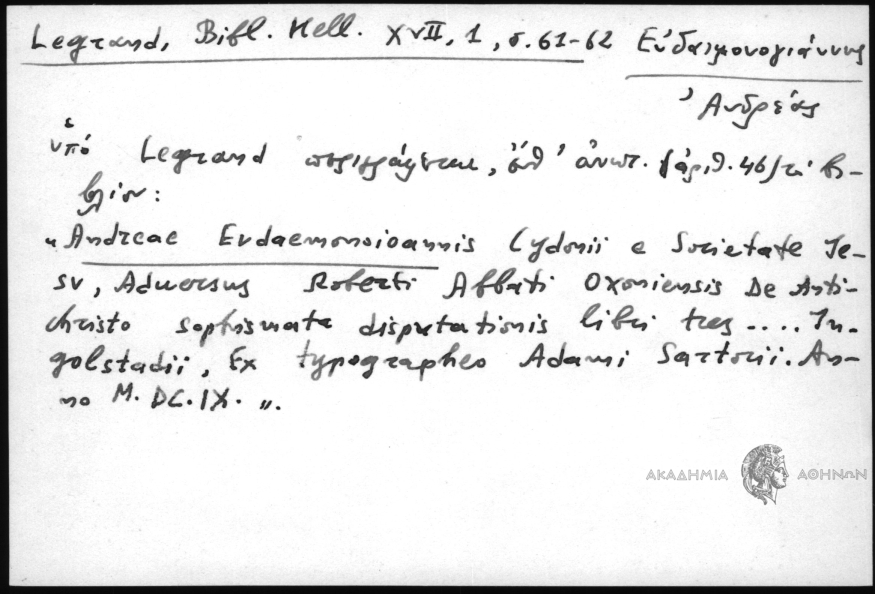 Legrand, Bibl. Hell. XVII, 1, σ. 61-62 Εὐδαιμονογιάννης
Ἀνδρέας
ὑπό Legrand περιγράφεται, ἔνθ' ἀνωτ. (ἀριθ. 46) τό βι-
βλίον:
"Andreae Eudaemonoioannis Cydonii e Societate Je-
su, Adversus Roberti Abbati Oxoniensis De Anti-
christo sophismata disputationis libri tres .... In-
golstadii, Ex typographeo Adami Sartorii. An-
no M. DC. IX. ".
ΑΚΑΔΗΜΙΑ ΑΘΗΝΩΝ